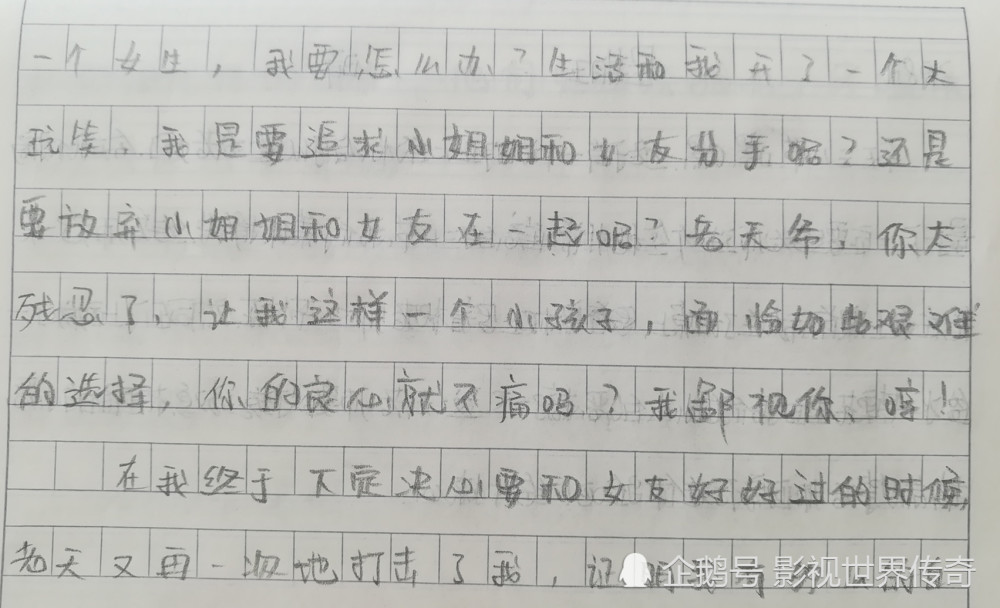 一个女生，我要怎么办？生活和我开了一个大
玩笑，我是要追求小姐姐和女友分手呢？还是
要放弃小姐姐和女友在一起呢？老天爷，你太
残忍了，让我这样一个小孩子，面临如此艰难
的选择，你的良心就不痛吗？我鄙视你，哼！
在我终于下定决心要和女友好好过的时候，
老天又再一次地打击了我，证明我
企鹅号 影视世界传奇